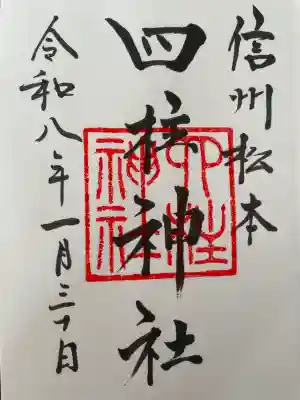 信州松本
四柱神社
四柱神社
令和八年一月三十日